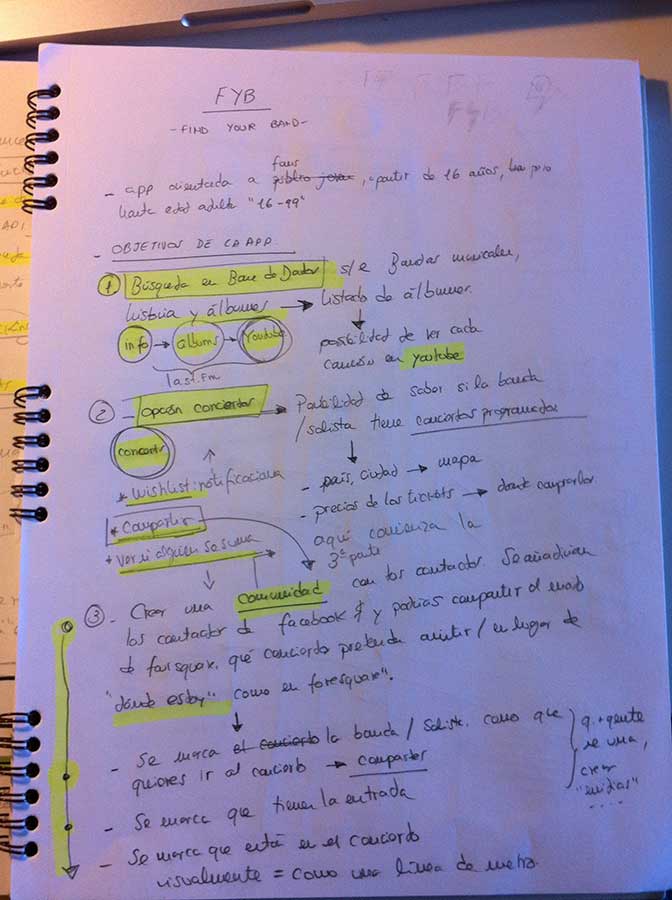 FYB
- FIND YOUR BAND -
fans
- app orientada a público joven, a partir de 16 años,
hasta edad adulta "16-99"
- OBJETIVOS DE LA APP.
① Búsqueda en Base de Datos s/e Bandas musicales,
historia y álbumes → listado de álbumes.
info → albums → Youtube
last.fm
posibilidad de ver cada
canción en youtube
② - opción conciertos → Posibilidad de saber si la banda
/ solista tiene conciertos programados
concierto
- país, ciudad → mapa
* wishlist: notificaciones
- precios de los tickets → donde comprarlos
* Compartir
aquí comienza la
3ª parte
* Ver si alguien se suma
③ - Crear una comunidad con los contactos. Se añadirían
los contactos de facebook y podrías compartir al modo
de foursquare, qué conciertos pretendes asistir / en lugar de
"dónde estoy" como en foresquare".
- Se marca el concierto la banda / solista. como que
quieres ir al concierto → compartes
q. + gente
se una,
crear
- Se marca que tienen la entrada
- Se marca que está en el concierto
visualmente = como una línea de metro.